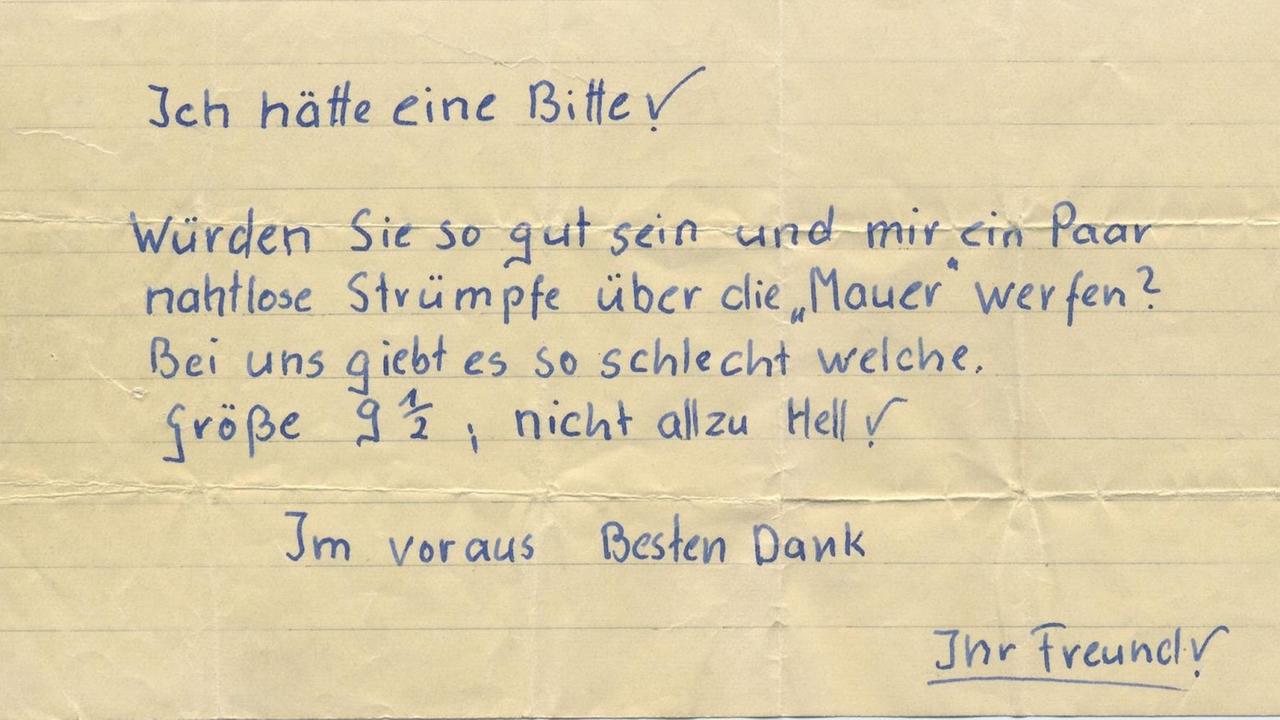 Ich hätte eine Bitte!
Würden Sie so gut sein und mir ein Paar
nahtlose Strümpfe über die „Mauer“ werfen?
Bei uns giebt es so schlecht welche.
Größe 9 1/2, nicht allzu Hell!
Im voraus Besten Dank
Ihr Freund!